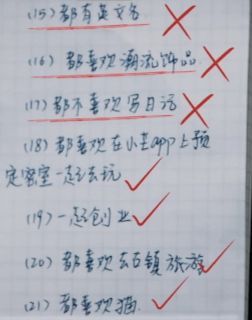 (15) 都有英文名
(16) 都喜欢潮流饰品
(17) 都不喜欢写日记
(18) 都喜欢在小美app上预
定密室一起去玩
(19) 一起创业
(20) 都喜欢去古镇旅游
(21) 都喜欢猫.